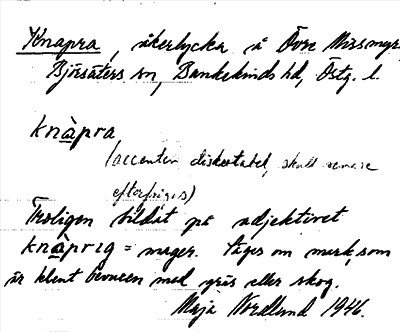 Knapra, åkerlycka å Övre Missmyra
Björsäters sn, Bankekinds hd, Östg. l.
knàpra
(accenten diskutabel, skall senare
efterfrågas)
Troligen bildat på adjektivet
knàprig = mager. Säges om mark, som
är klent bevuxen med gräs eller skog.
Maja Nordlund 1946.